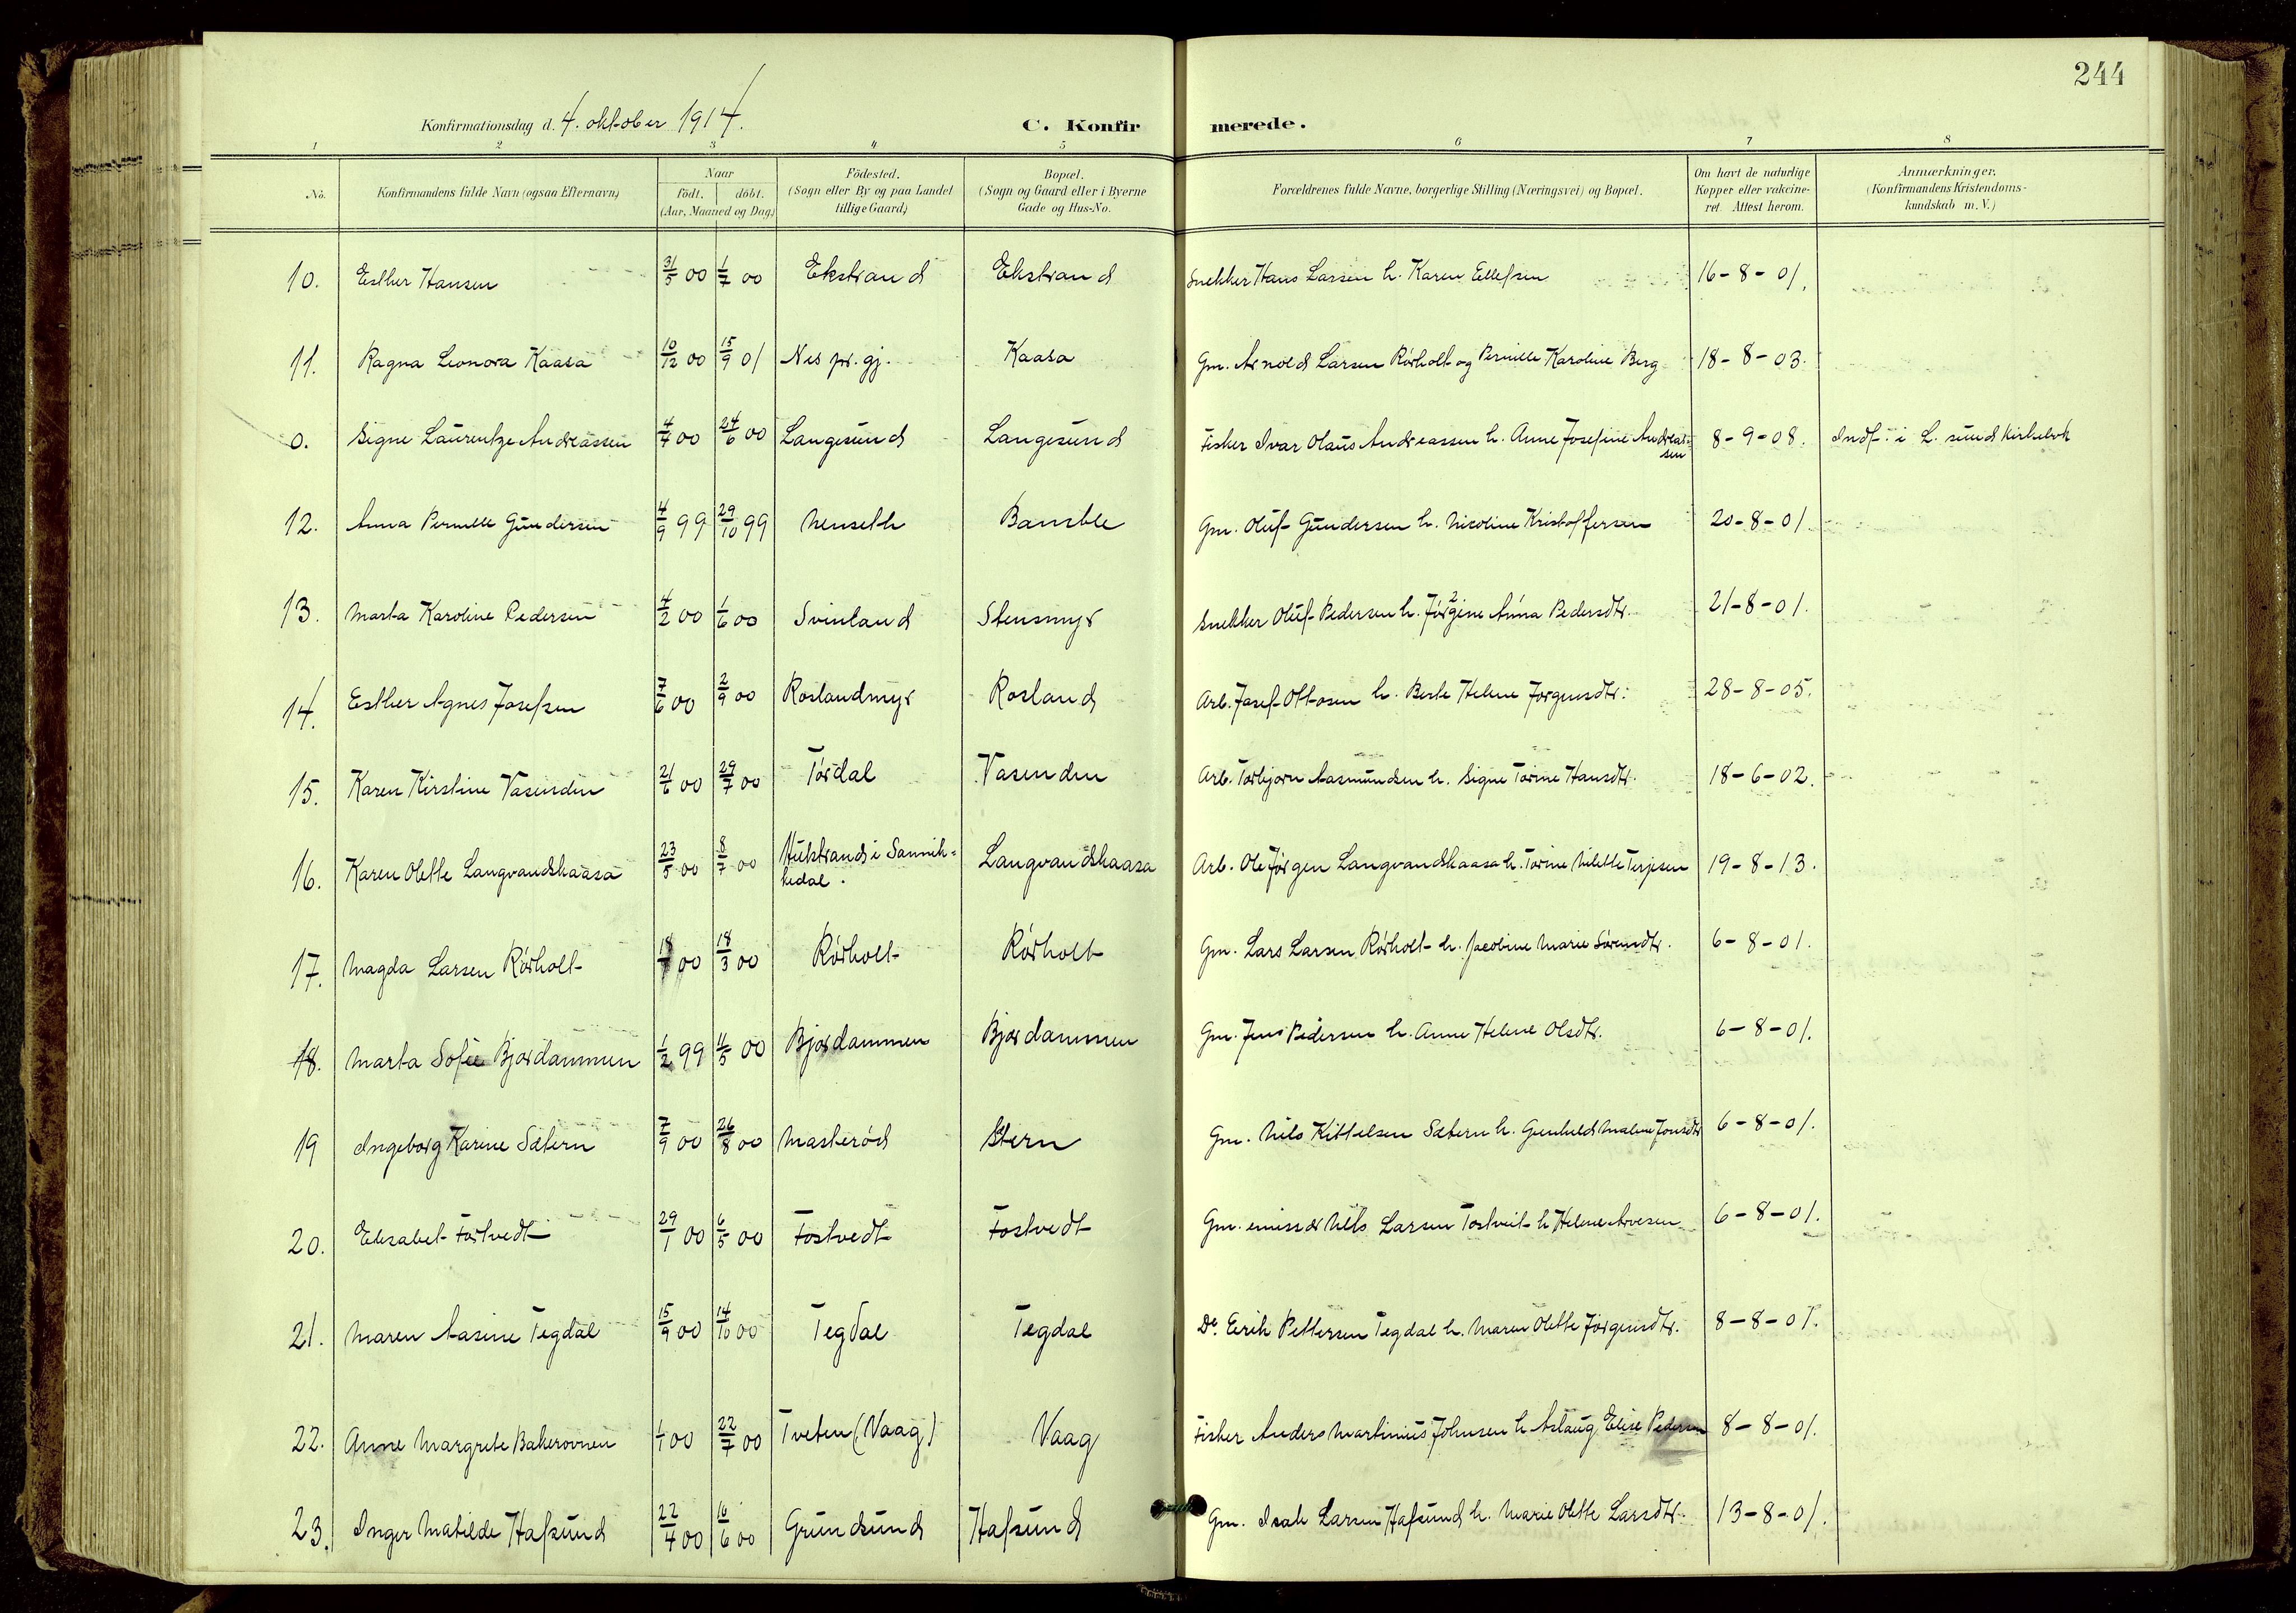 244
Konfirmationsdag d. 4. oktober 1914.
C. Konfirmerede.
1 2 3 4 5 6 7 8
No. Konfirmandens fulde Navn (ogsaa Efternavn) Naar födt. döbt. (Aar, Maaned og Dag) Födested. (Sogn eller By og paa Landet tillige Gaard) Bopæl. (Sogn og Gaard eller i Byerne Gade og Hus-No. Forældrenes fulde Navne, borgerlige Stilling (Næringsvei) og Bopæl. Om havt de naturlige Kopper eller vakcineret. Attest herom. Anmærkninger. (Konfirmandens Kristendomskundskab m. V.)
10. Esther Hansen 31/5 00 1/7 00 Ekstrand Ekstrand Snekker Hans Larsen h. Karen Ellefsen 16-8-01.
11. Ragna Leonora Kaasa 10/12 00 15/9 01 Nes pr. gj. Kaasa Gm. Arnold Larsen Rörholt og Pernille Karoline Berg 18-8-03.
0. Signe Laurentze Andreassen 4/4 00 24/6 00 Langesund Langesund Fisker Ivar Olaus Andreassen h. Anne Josefine Andreassen 8-9-08. Indf. i L. sund kirkebok
12. Anna Pernille Gundersen 4/9 99 29/10 99 Nenseth Bamble Gm. Oluf Gundersen h. Nicoline Kristoffersen 20-8-01.
13. Marta Karoline Pedersen 4/2 00 1/6 00 Svinland Stensmyr Snekker Oluf Pedersen h. Jörgine Anna Pedersdtr. 21-8-01.
14. Esther Agnes Josefsen 7/6 00 2/9 00 Roslandmyr Rosland Arb. Josef Ottosen h. Berte Helene Jorgensdtr: 28-8-05.
15. Karen Kirstine Vasenden 21/6 00 29/7 00 Tördal Vasenden Arb. Torbjorn Aasmundsen h. Signe Torine Hansdtr. 18-6-02.
16. Karen Olette Langvandskaasa 23/5 00 8/7 00 i Sannikkedal. Langvandskaasa Arb. Ole Jörgen Langvandskaasa h. Torine Nilette Terjesen 19-8-13.
17. Magda Larsen Rörholt 00 18/3 00 Rörholt Rörholt Gm. Lars Larsen Rörholt h. Jacobine Marie Sörensdtr. 6-8-01.
18. Marta Sofie Bjordammen 1/2 99 4/5 00 Bjordammen Bjordammen Gm. Jens Pedersen h. Anne Helene Olsdtr. 6-8-01.
19 Ingeborg Karine Sætern 7/9 00 26/8 00 Masteröd Gm. Nils Kittelsen Sætern h. Gunhild Malene Jonsdtr 6-8-01.
20. Elisabet Tostvedt 29/1 00 6/5 00 Tostvedt Tostvedt Gm. emissær Nils Larsen Tostveit h Helene Arvesen 6-8-01.
21. Maren Aasine Tegdal 15/9 00 14/10 00 Tegdal Tegdal Do. Eerik Pettersen Tegdal h. Maren Olette Jörgensdtr. 8-8-01.
22. Anne Margrete Bakerovnen 1/1 00 22/7 00 Tveten (Vaag) Vaag Fisker Anders Martinius Johnsen h Aslaug Elise Pedersen 8-8-01.
23. Inger Matilde Hafsund 22/4 00 10/6 00 Grundsund Hafsund Gm. Isak Larsen Hafsund h. Marie Olette Larsdtr. 13-8-01.